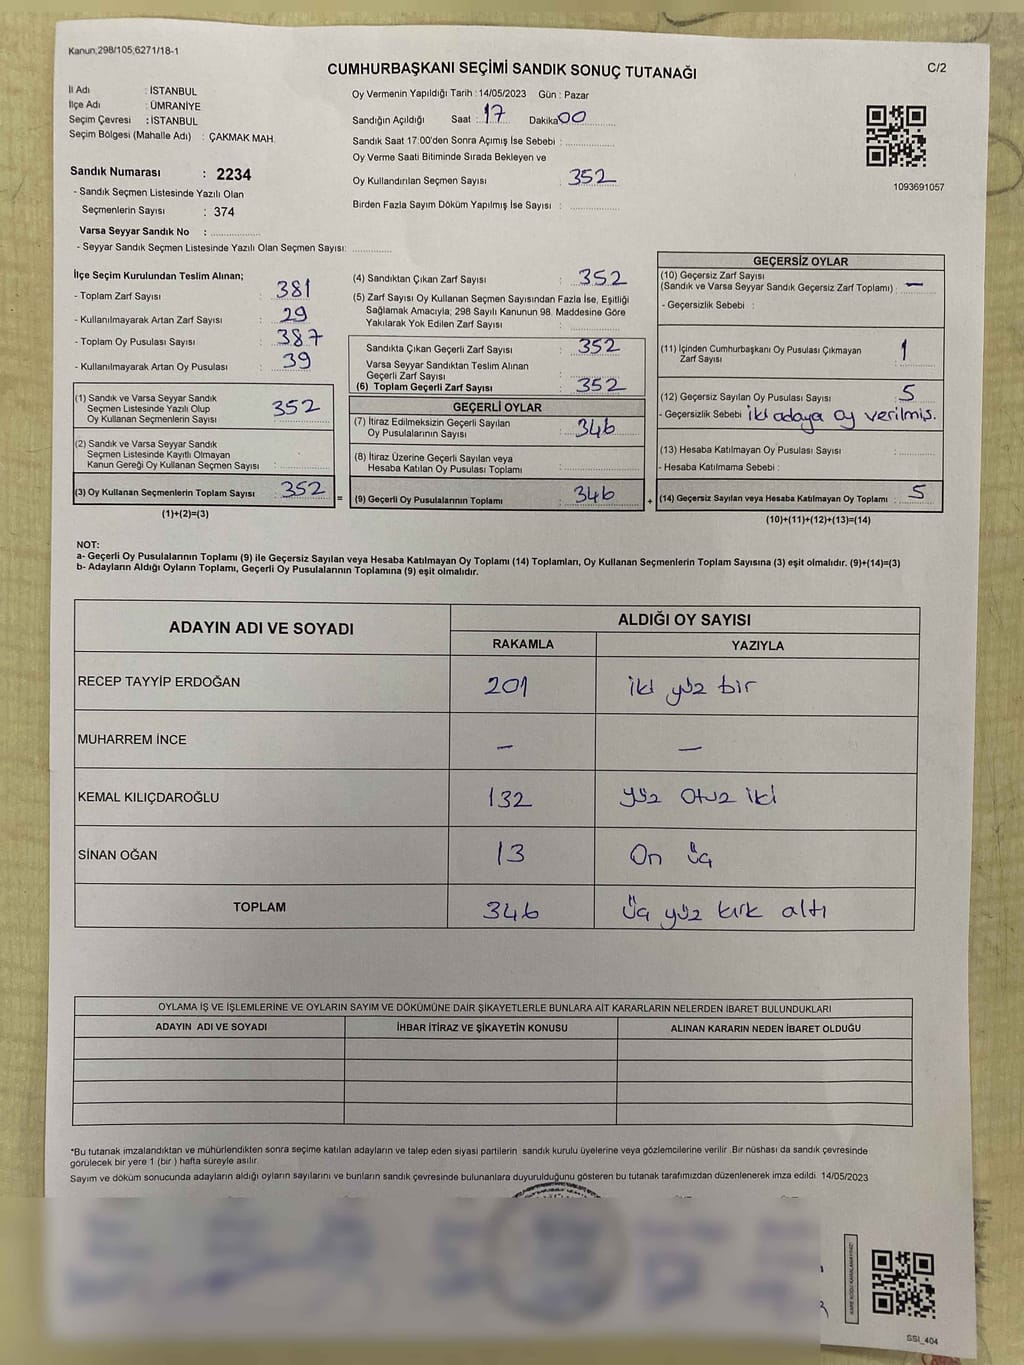 Kanun,298/105,6271/18-1
C/2
CUMHURBAŞKANI SEÇİMİ SANDIK SONUÇ TUTANAĞI
İl Adı : İSTANBUL
İlçe Adı : ÜMRANİYE
Seçim Çevresi : İSTANBUL
Seçim Bölgesi (Mahalle Adı) : ÇAKMAK MAH.
Sandık Numarası : 2234
- Sandık Seçmen Listesinde Yazılı Olan
Seçmenlerin Sayısı : 374
Varsa Seyyar Sandık No : ..............
- Seyyar Sandık Seçmen Listesinde Yazılı Olan Seçmen Sayısı: ............
Oy Vermenin Yapıldığı Tarih : 14/05/2023 Gün : Pazar
Sandığın Açıldığı Saat : 17 Dakika 00
Sandık Saat 17:00'den Sonra Açımış İse Sebebi : ..............
Oy Verme Saati Bitiminde Sırada Bekleyen ve
Oy Kullandırılan Seçmen Sayısı : 352
Birden Fazla Sayım Döküm Yapılmış İse Sayısı : ..............
1093691057
İlçe Seçim Kurulundan Teslim Alınan;
- Toplam Zarf Sayısı : 381
- Kullanılmayarak Artan Zarf Sayısı : 29
- Toplam Oy Pusulası Sayısı : 387
- Kullanılmayarak Artan Oy Pusulası : 39
(1) Sandık ve Varsa Seyyar Sandık
Seçmen Listesinde Yazılı Olup
Oy Kullanan Seçmenlerin Sayısı : 352
(2) Sandık ve Varsa Seyyar Sandık
Seçmen Listesinde Kayıtlı Olmayan
Kanun Gereği Oy Kullanan Seçmen Sayısı : ..............
(3) Oy Kullanan Seçmenlerin Toplam Sayısı : 352 =
(1)+(2)=(3)
(4) Sandıktan Çıkan Zarf Sayısı : 352
(5) Zarf Sayısı Oy Kullanan Seçmen Sayısından Fazla İse, Eşitliği
Sağlamak Amacıyla; 298 Sayılı Kanunun 98. Maddesine Göre
Yakılarak Yok Edilen Zarf Sayısı : ..............
Sandıkta Çıkan Geçerli Zarf Sayısı : 352
Varsa Seyyar Sandıktan Teslim Alınan
Geçerli Zarf Sayısı : ..............
(6) Toplam Geçerli Zarf Sayısı : 352
GEÇERLİ OYLAR
(7) İtiraz Edilmeksizin Geçerli Sayılan
Oy Pusulalarının Sayısı : 346
(8) İtiraz Üzerine Geçerli Sayılan veya
Hesaba Katılan Oy Pusulası Toplamı : ..............
(9) Geçerli Oy Pusulalarının Toplamı : 346 +
GEÇERSİZ OYLAR
(10) Geçersiz Zarf Sayısı
(Sandık ve Varsa Seyyar Sandık Geçersiz Zarf Toplamı) : —
- Geçersizlik Sebebi :
(11) İçinden Cumhurbaşkanı Oy Pusulası Çıkmayan
Zarf Sayısı : 1
(12) Geçersiz Sayılan Oy Pusulası Sayısı : 5
- Geçersizlik Sebebi : iki adaya oy verilmiş.
(13) Hesaba Katılmayan Oy Pusulası Sayısı : ..............
- Hesaba Katılmama Sebebi :
(14) Geçersiz Sayılan veya Hesaba Katılmayan Oy Toplamı : 5
(10)+(11)+(12)+(13)=(14)
NOT:
a- Geçerli Oy Pusulalarının Toplamı (9) ile Geçersiz Sayılan veya Hesaba Katılmayan Oy Toplamı (14) Toplamları, Oy Kullanan Seçmenlerin Toplam Sayısına (3) eşit olmalıdır. (9)+(14)=(3)
b- Adayların Aldığı Oyların Toplamı, Geçerli Oy Pusulalarının Toplamına (9) eşit olmalıdır.
ADAYIN ADI VE SOYADI
ALDIĞI OY SAYISI
RAKAMLA YAZIYLA
RECEP TAYYİP ERDOĞAN 201 iki yüz bir
MUHARREM İNCE — —
KEMAL KILIÇDAROĞLU 132 yüz otuz iki
SİNAN OĞAN 13 On üç
TOPLAM 346 üç yüz kırk altı
OYLAMA İŞ VE İŞLEMLERİNE VE OYLARIN SAYIM VE DÖKÜMÜNE DAİR ŞİKAYETLERLE BUNLARA AİT KARARLARIN NELERDEN İBARET BULUNDUKLARI
ADAYIN ADI VE SOYADI İHBAR İTİRAZ VE ŞİKAYETİN KONUSU ALINAN KARARIN NEDEN İBARET OLDUĞU
*Bu tutanak imzalandıktan ve mühürlendikten sonra seçime katılan adayların ve talep eden siyasi partilerin sandık kurulu üyelerine veya gözlemcilerine verilir. Bir nüshası da sandık çevresinde
görülecek bir yere 1 (bir ) hafta süreyle asılır.
Sayım ve döküm sonucunda adayların aldığı oyların sayılarını ve bunların sandık çevresinde bulunanlara duyurulduğunu gösteren bu tutanak tarafımızdan düzenlenerek imza edildi. 14/05/2023
SSI_404